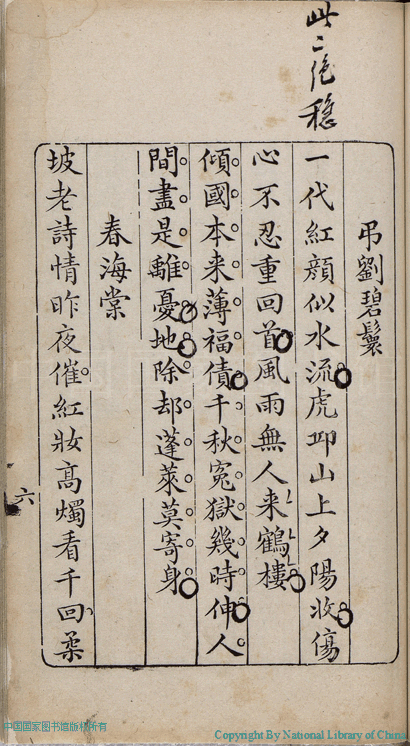 此二絶穩
弔劉碧鬟
一代紅顔似水流虎邱山上夕陽收傷
心不忍重回首風雨無人来鶴樓
傾國本来薄福債千秋冤獄幾時伸人
間盡是離憂地除却蓬萊莫寄身
春海棠
坡老詩情昨夜催紅妝高燭看千回柔
六
中国国家图书馆版权所有
Copyright By National Library of China